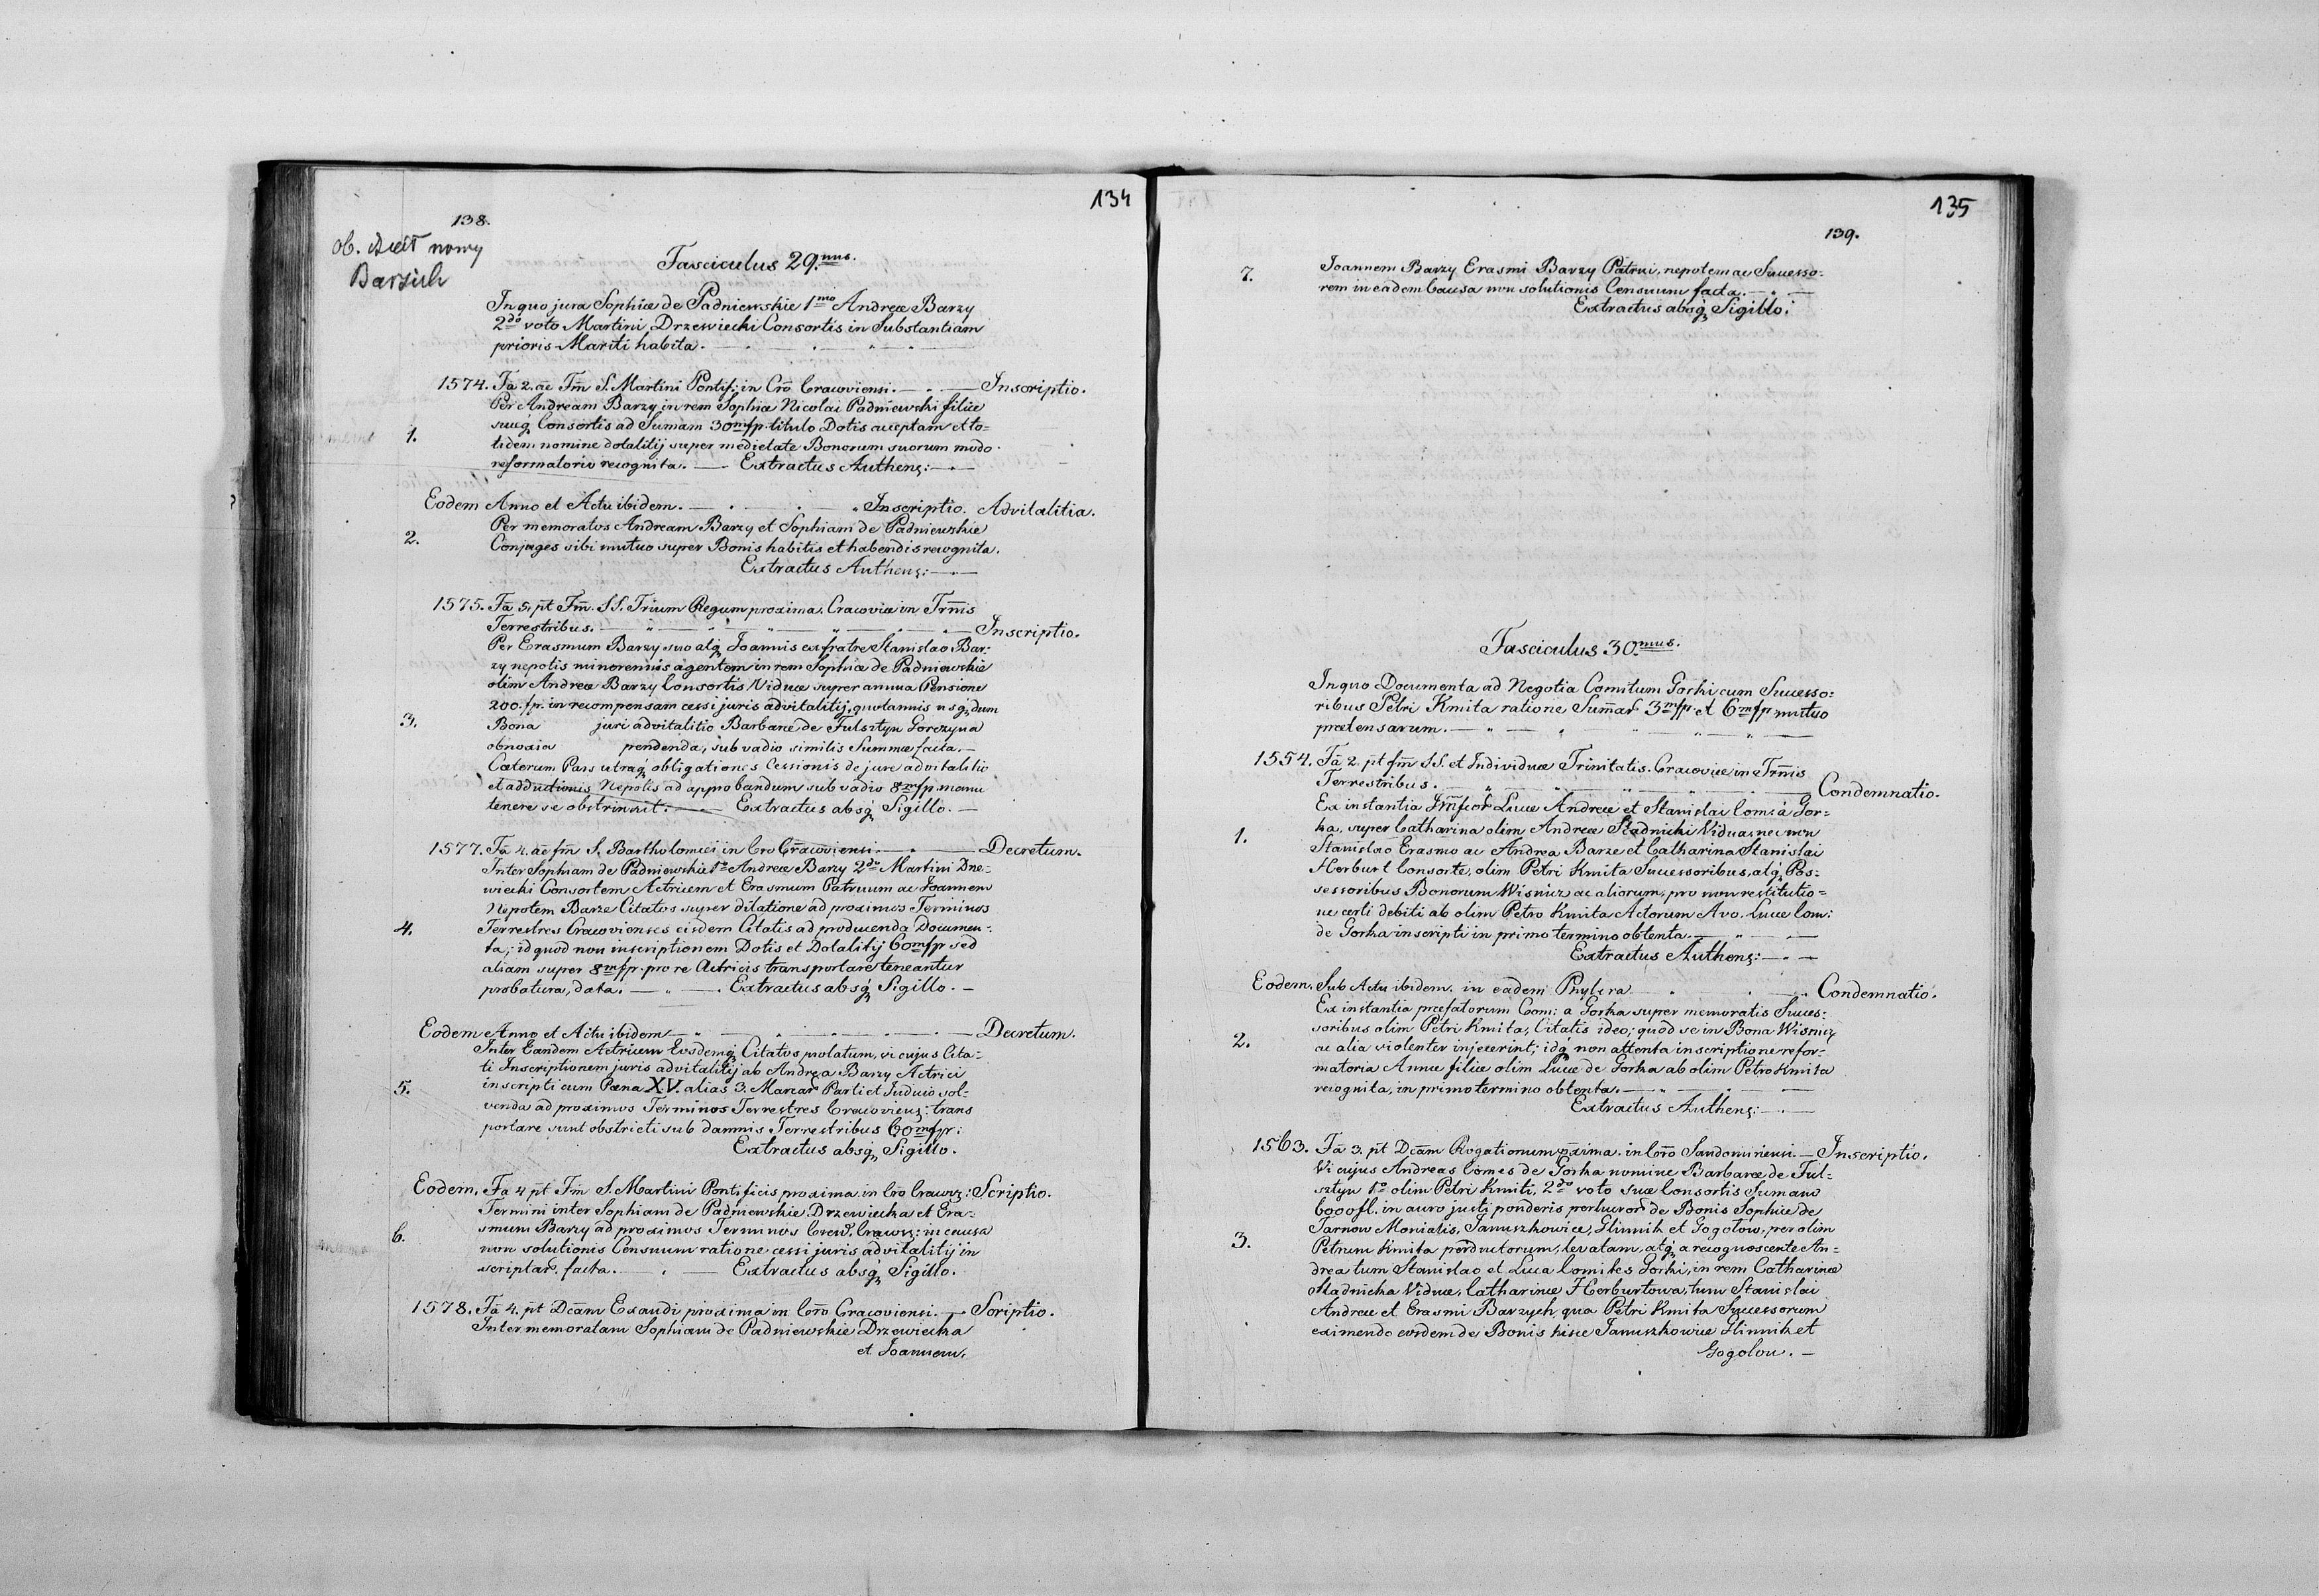 134
138.
ob. nowy
Barzich
Fasciculus 29.nus.
In quo jura Sophiæ de Padniewskie 1mo Andreæ Barzy
2do voto Martini Drzewiecki Consortis in Substantiam
prioris Mariti habita.
1574. Fa 2. ae Fm S. Martini Pontif: in Cro Cracoviensi. Inscriptio.
Per Andream Barzy in rem Sophiæ Nicolai Padniewski filiæ
suæq Consortis ad Sumam 30mfp. titulo Dotis acceptam et to=
1.
tidem nomine dotalitij super medietate Bonorum suorum modo
reformatorio recognita. Extractus Authens:
Eodem Anno et Actu ibidem. Inscriptio. Advitalitia.
Per memoratos Andream Barzy et Sophiam de Padniewskie
2.
Conjuges sibi mutuo super Bonis habitis et habendis recognita.
Extractus Authens:
1575. Fa 5. pt Fm. SS. Trium Regum proxima. Cracoviæ in Trmis
Terrestribus. Inscriptio.
Per Erasmum Barzy suo atq Joannis ex fratre Stanislao Bar=
zy nepotis minorennis agentem in rem Sophiæ de Padniewskie
olim Andreæ Barzy Consortis Viduæ super annua Pensione
200. fp. in recompensam cessi juris advitalitij, quotannis usq dum
3.
Bona juri advitalitio Barbaræ de Fulsztyn Gorczyna
obnoxia pendenda, sub vadio similis Summæ facta.
Cæterum Pars utraq obligationes Cessionis de jure advitalitio
et adductionis Nepotis ad approbandum sub vadio 8mfp. manu
tenere se obstrinxit. Extractus absq Sigillo.
1577. Fa 4. ae fm S. Bartholomæi in Cro Cracoviensi. Decretum.
Inter Sophiam de Padniewskie 1o Andreæ Barzy 2do Martini Drze=
wiecki Consortem Actricem et Erasmum Patruum ac Joannem
Nepotem Barze Citatos super dilatione ad proximos Terminos
4.
Terrestres Cracovienses eisdem Citatis ad producenda Documen=
ta; id quod non inscriptionem Dotis et Dotalitij 60mfp sed
aliam super 8mfp. pro re Actricis transportare teneantur
probatura, data. Extractus absq Sigillo.
Eodem Anno et Actu ibidem Decretum.
Inter Eandem Actricem Eosdemq Citatos prolatum, vi cujus Cita=
ti Inscriptionem juris advitalitij ab Andrea Barzy Actrici
5.
inscripti cum Pæna XV. alias 3. Marcar Parti et Judicio sol=
venda ad proximos Terminos Terrestres Cracoviens: trans
portare sunt obstricti sub damnis Terrestribus 60mfp:
Extractus absq Sigillo.
Eodem. Fa 4 pt Fm S. Martini Pontificis proxima in Cro Cracovs: Scriptio.
Termini inter Sophiam de Padniewskie Drzewiecka et Era=
smum Barzy ad proximos Terminos Cracovs: in causa
6.
non solutionis Censuum ratione cessi juris advitalitij in
scriptar. facta. Extractus absq Sigillo.
1578. Fa 4. pt Dcam Exaudi proxima in Cro Cracoviensi. Scriptio.
Inter memoratam Sophiam de Padniewskie Drzewiecka
et Joannem.
135
139.
7.
Joannem Barzy Erasmi Barzy Patrui, nepotem ac Successo=
rem in eadem Causa non solutionis Censuum facta.
Extractus absq Sigillo.
Fasciculus 30.mus.
In quo Documenta ad Negotia Comitum Gorki cum Successo=
ribus Petri Kmita ratione Sumar 3mfp. et 6mfp mutuo
prætensarum.
1554. Fa 2. pt fm SS. et Individuæ Trinitatis. Cracoviæ in Trmis
Terrestribus. Condemnatio.
Ex instantia Lucæ Andreæ et Stanislai Comit a Gor=
ka, super Catharina olim Andreæ Stadnicki Vidua nec non
1.
Stanislao Erasmo ac Andrea Barze et Catharina Stanislai
Herburt Consorte, olim Petri Kmita Successoribus, atq Pos=
sessoribus Bonorum Wisnicz ac aliorum, pro non restitutio=
ne certi debiti ab olim Petro Kmita Actorum Avo. Lucæ Com:
de Gorka inscripti in primo termino obtenta.
Extractus Authens:
Eodem. Sub Actu ibidem. in eadem Phylira Condemnatio.
Ex instantia præfatorum Com: a Gorka super memoratis Succes=
soribus olim Petri Kmita, Citatis ideo; quod se in Bona Wisnicz
2.
ac alia violenter injecerint; idq non attenta inscriptione refor=
matoria Annæ filiæ olim Lucæ de Gorka ab olim Petro Kmita
recognita, in primo termino obtenta.
Extractus Authens:
1563. Fa 3. pt Dcam Rogationum pxima. in Cro Sandomiriensi. Inscriptio.
Vi cujus Andreas Comes de Gorka nomine Barbaræ de Ful=
sztyn 1o olim Petri Kmiti, 2do voto suæ Consortis Sumam
6000 fl. in auro justi ponderis de Bonis Sophiæ de
Tarnow Monialis, Januszkowice, Glinnik et Gogolow, per olim
3.
Petrum Kmita levatam, atq a recognoscente An=
drea tum Stanislao et Luca Comites Gorki, in rem Catharinæ
Stadnicka Viduæ, Catharinæ Herburtowa, tum Stanislai
Andreæ et Erasmi Barzych qua Petri Kmita Successorum
eximendo eosdem de Bonis hisce Januszkowice Glinnik et
Gogolow.